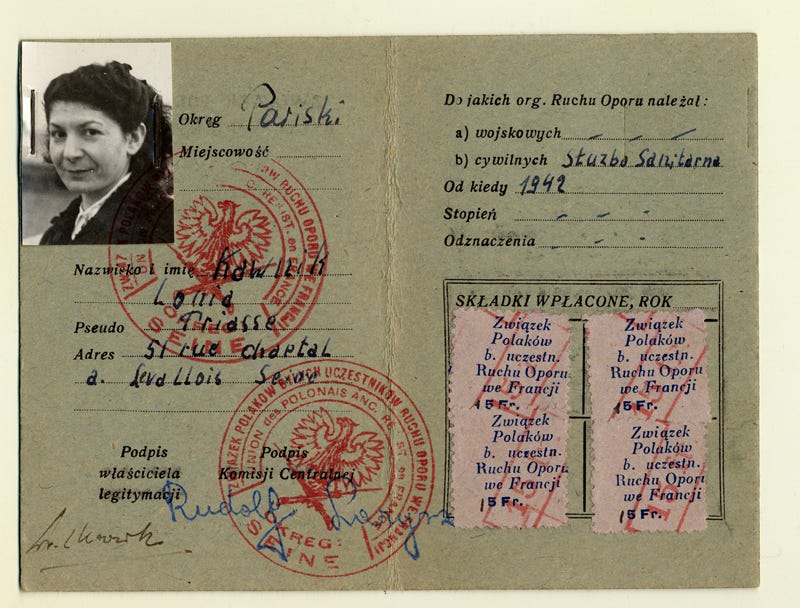 Okręg Pariski
Miejscowość
Nazwisko i imię Kawczik
Lonia
Pseudo Friasse
Adres 51 rue chaptal
a. Levallois Seine
Podpis właściciela legitymacji
Podpis Komisji Centralnej
Rudolf
OKRĘG:
SEINE
Do jakich org. Ruchu Oporu należał:
a) wojskowych - - -
b) cywilnych Służba Sanitarna
Od kiedy 1942
Stopień - - -
Odznaczenia - - -
SKŁADKI WPŁACONE, ROK
Związek
Polaków
b. uczestn.
Ruchu Oporu
we Francji
15 Fr.
Związek
Polaków
b. uczestn.
Ruchu Oporu
we Francji
15 Fr.
Związek
Polaków
b. uczestn.
Ruchu Oporu
we Francji
15 Fr.
Związek
Polaków
b. uczestn.
Ruchu Oporu
we Francji
15 Fr.